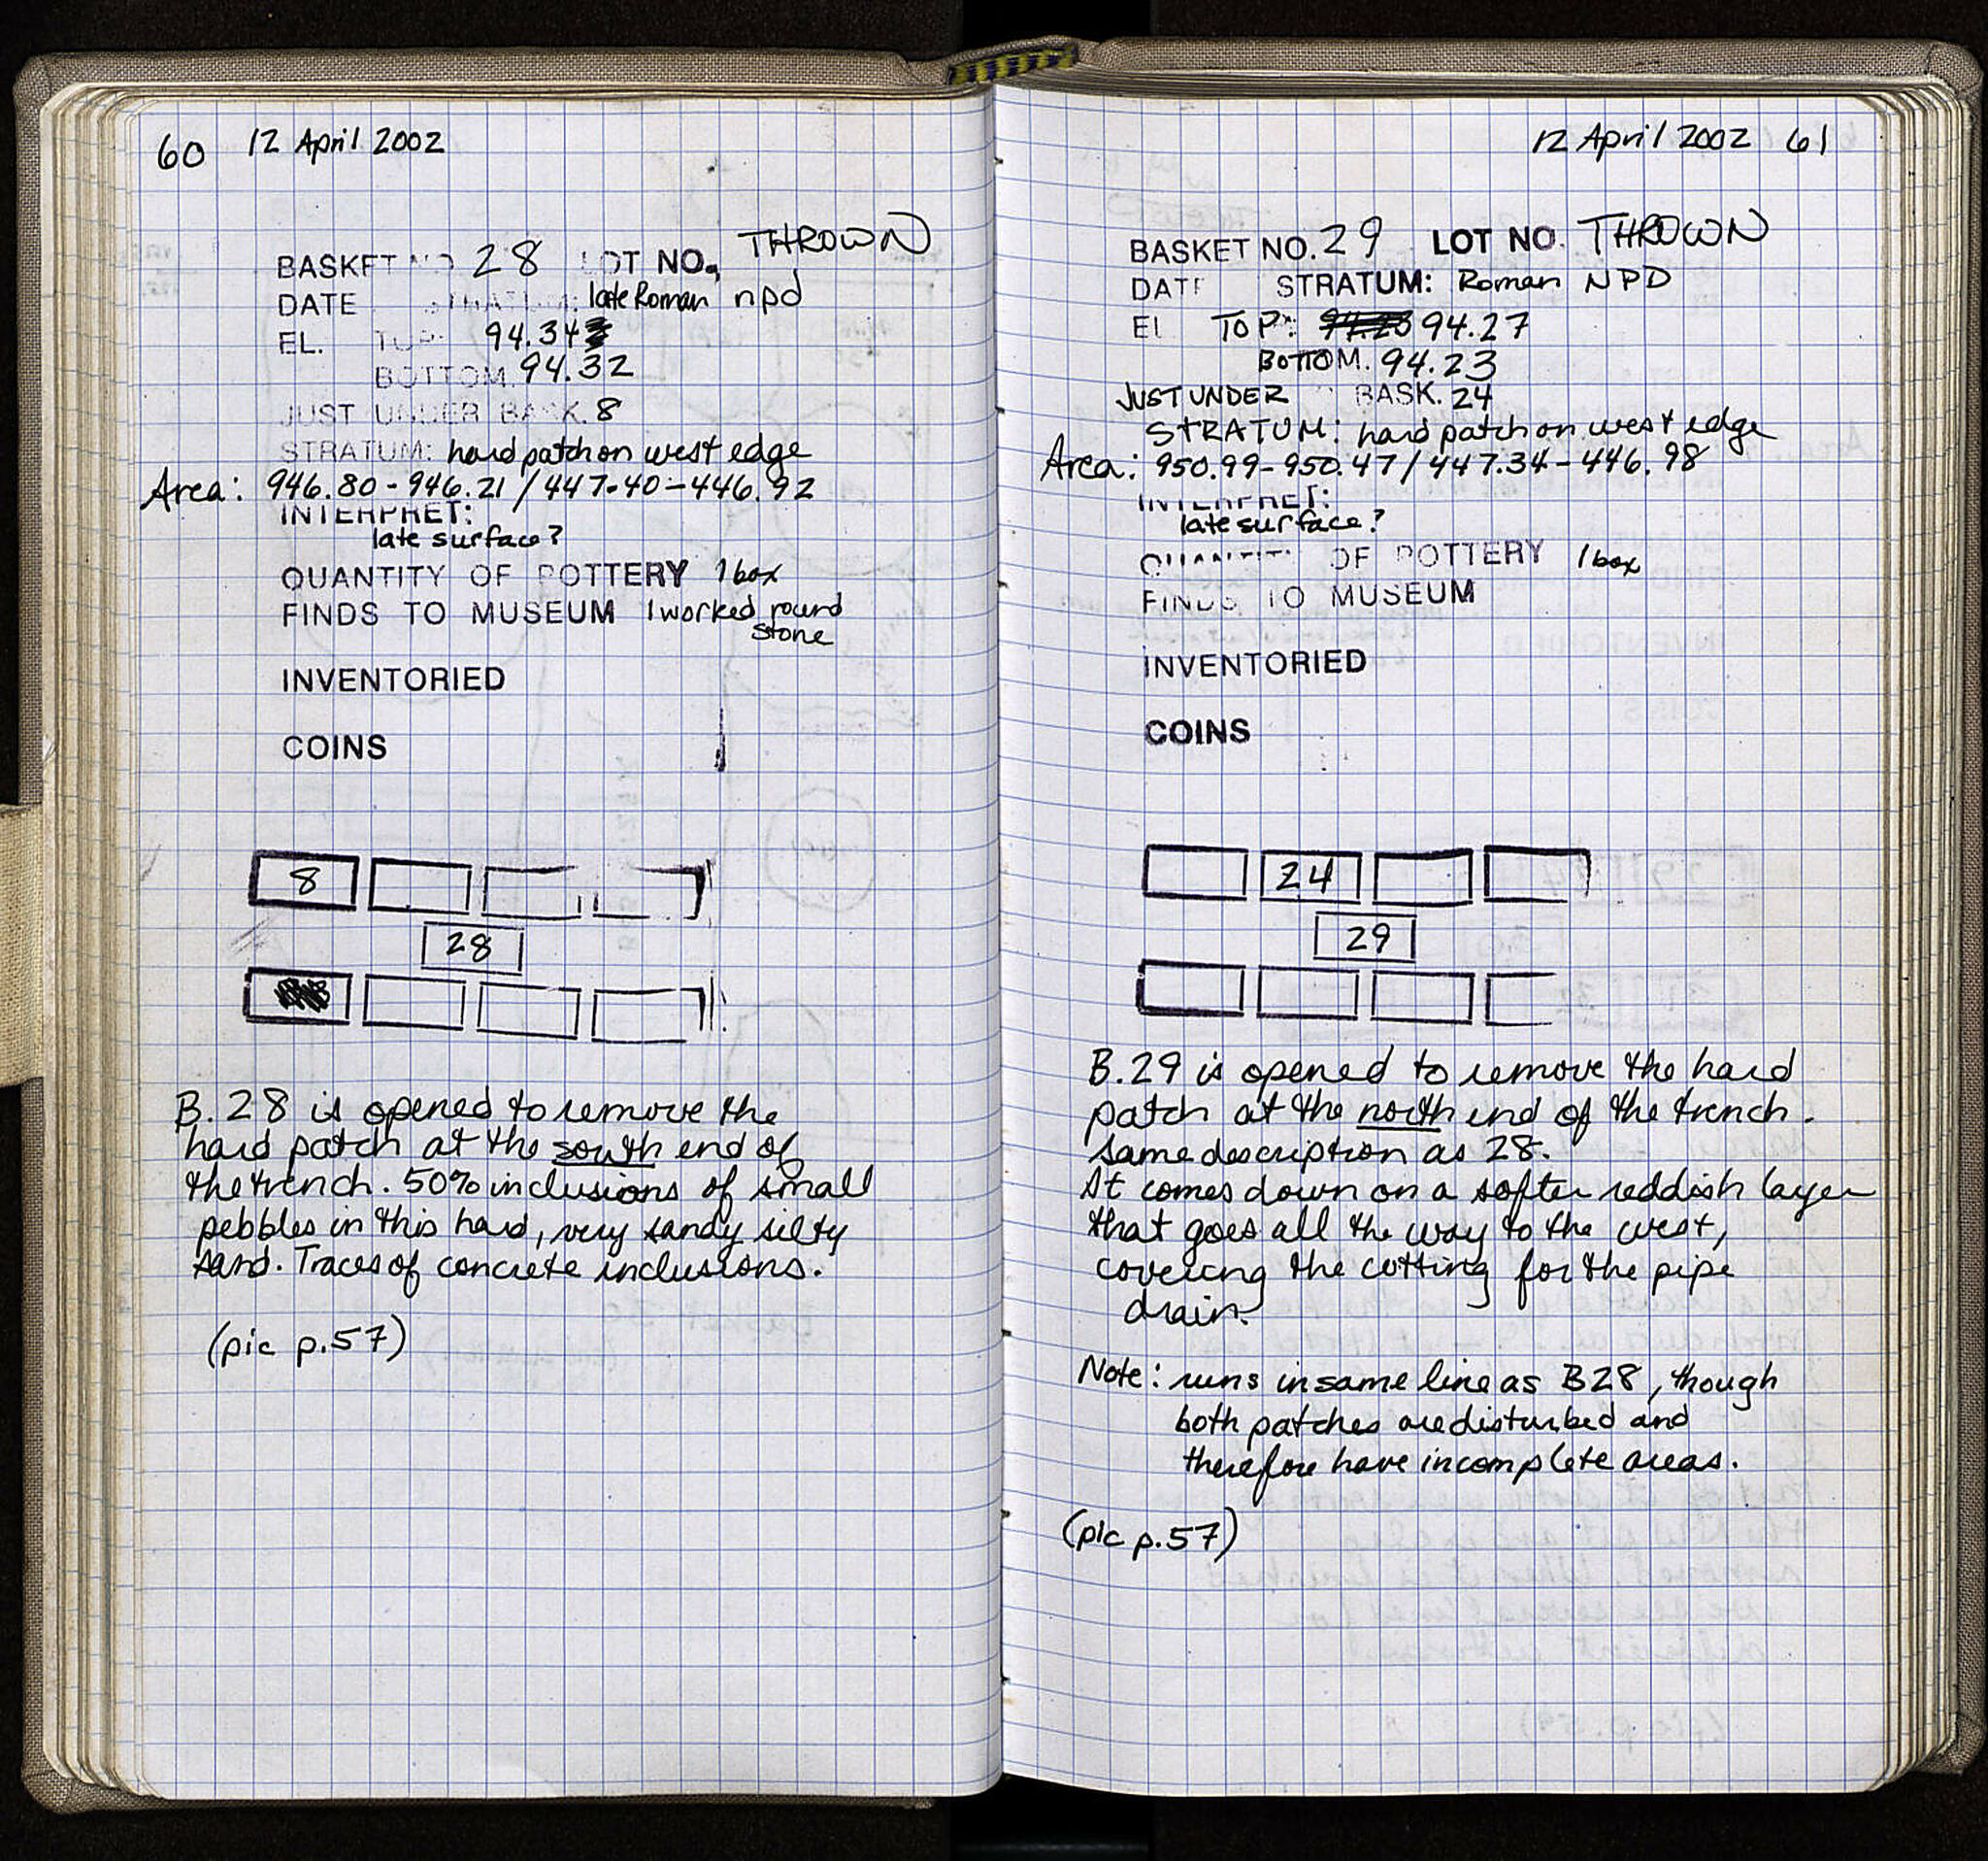 60 12 April 2002
BASKET NO. 28 LOT NO. THROWN
DATE STRATUM: late Roman npd
EL. TOP: 94.34
BOTTOM. 94.32
JUST UNDER BASK. 8
STRATUM: hard patch on west edge
Area: 946.80-946.21/447.40-446.92
INTERPRET:
late surface?
QUANTITY OF POTTERY 1 box
FINDS TO MUSEUM 1 worked round
stone
INVENTORIED
COINS
8
28
B.28 is opened to remove the
hard patch at the south end of
the trench. 50% inclusions of small
pebbles in this hard, very sandy silty
sand. Traces of concrete inclusions.
(pic p.57)
12 April 2002 61
BASKET NO. 29 LOT NO. THROWN
DATE STRATUM: Roman NPD
EL TOP: 94.27
BOTTOM. 94.23
JUST UNDER BASK. 24
STRATUM: hard patch on west edge
Area: 950.99-950.47/447.34-446.98
INTERPRET:
late surface?
QUANTITY OF POTTERY 1 box
FINDS TO MUSEUM
INVENTORIED
COINS
24
29
B.29 is opened to remove the hard
patch at the north end of the trench.
Same description as 28.
It comes down on a softer reddish layer
that goes all the way to the west,
covering the cutting for the pipe
drain.
Note: runs in same line as B28, though
both patches are disturbed and
therefore have incomplete areas.
(pic p.57)